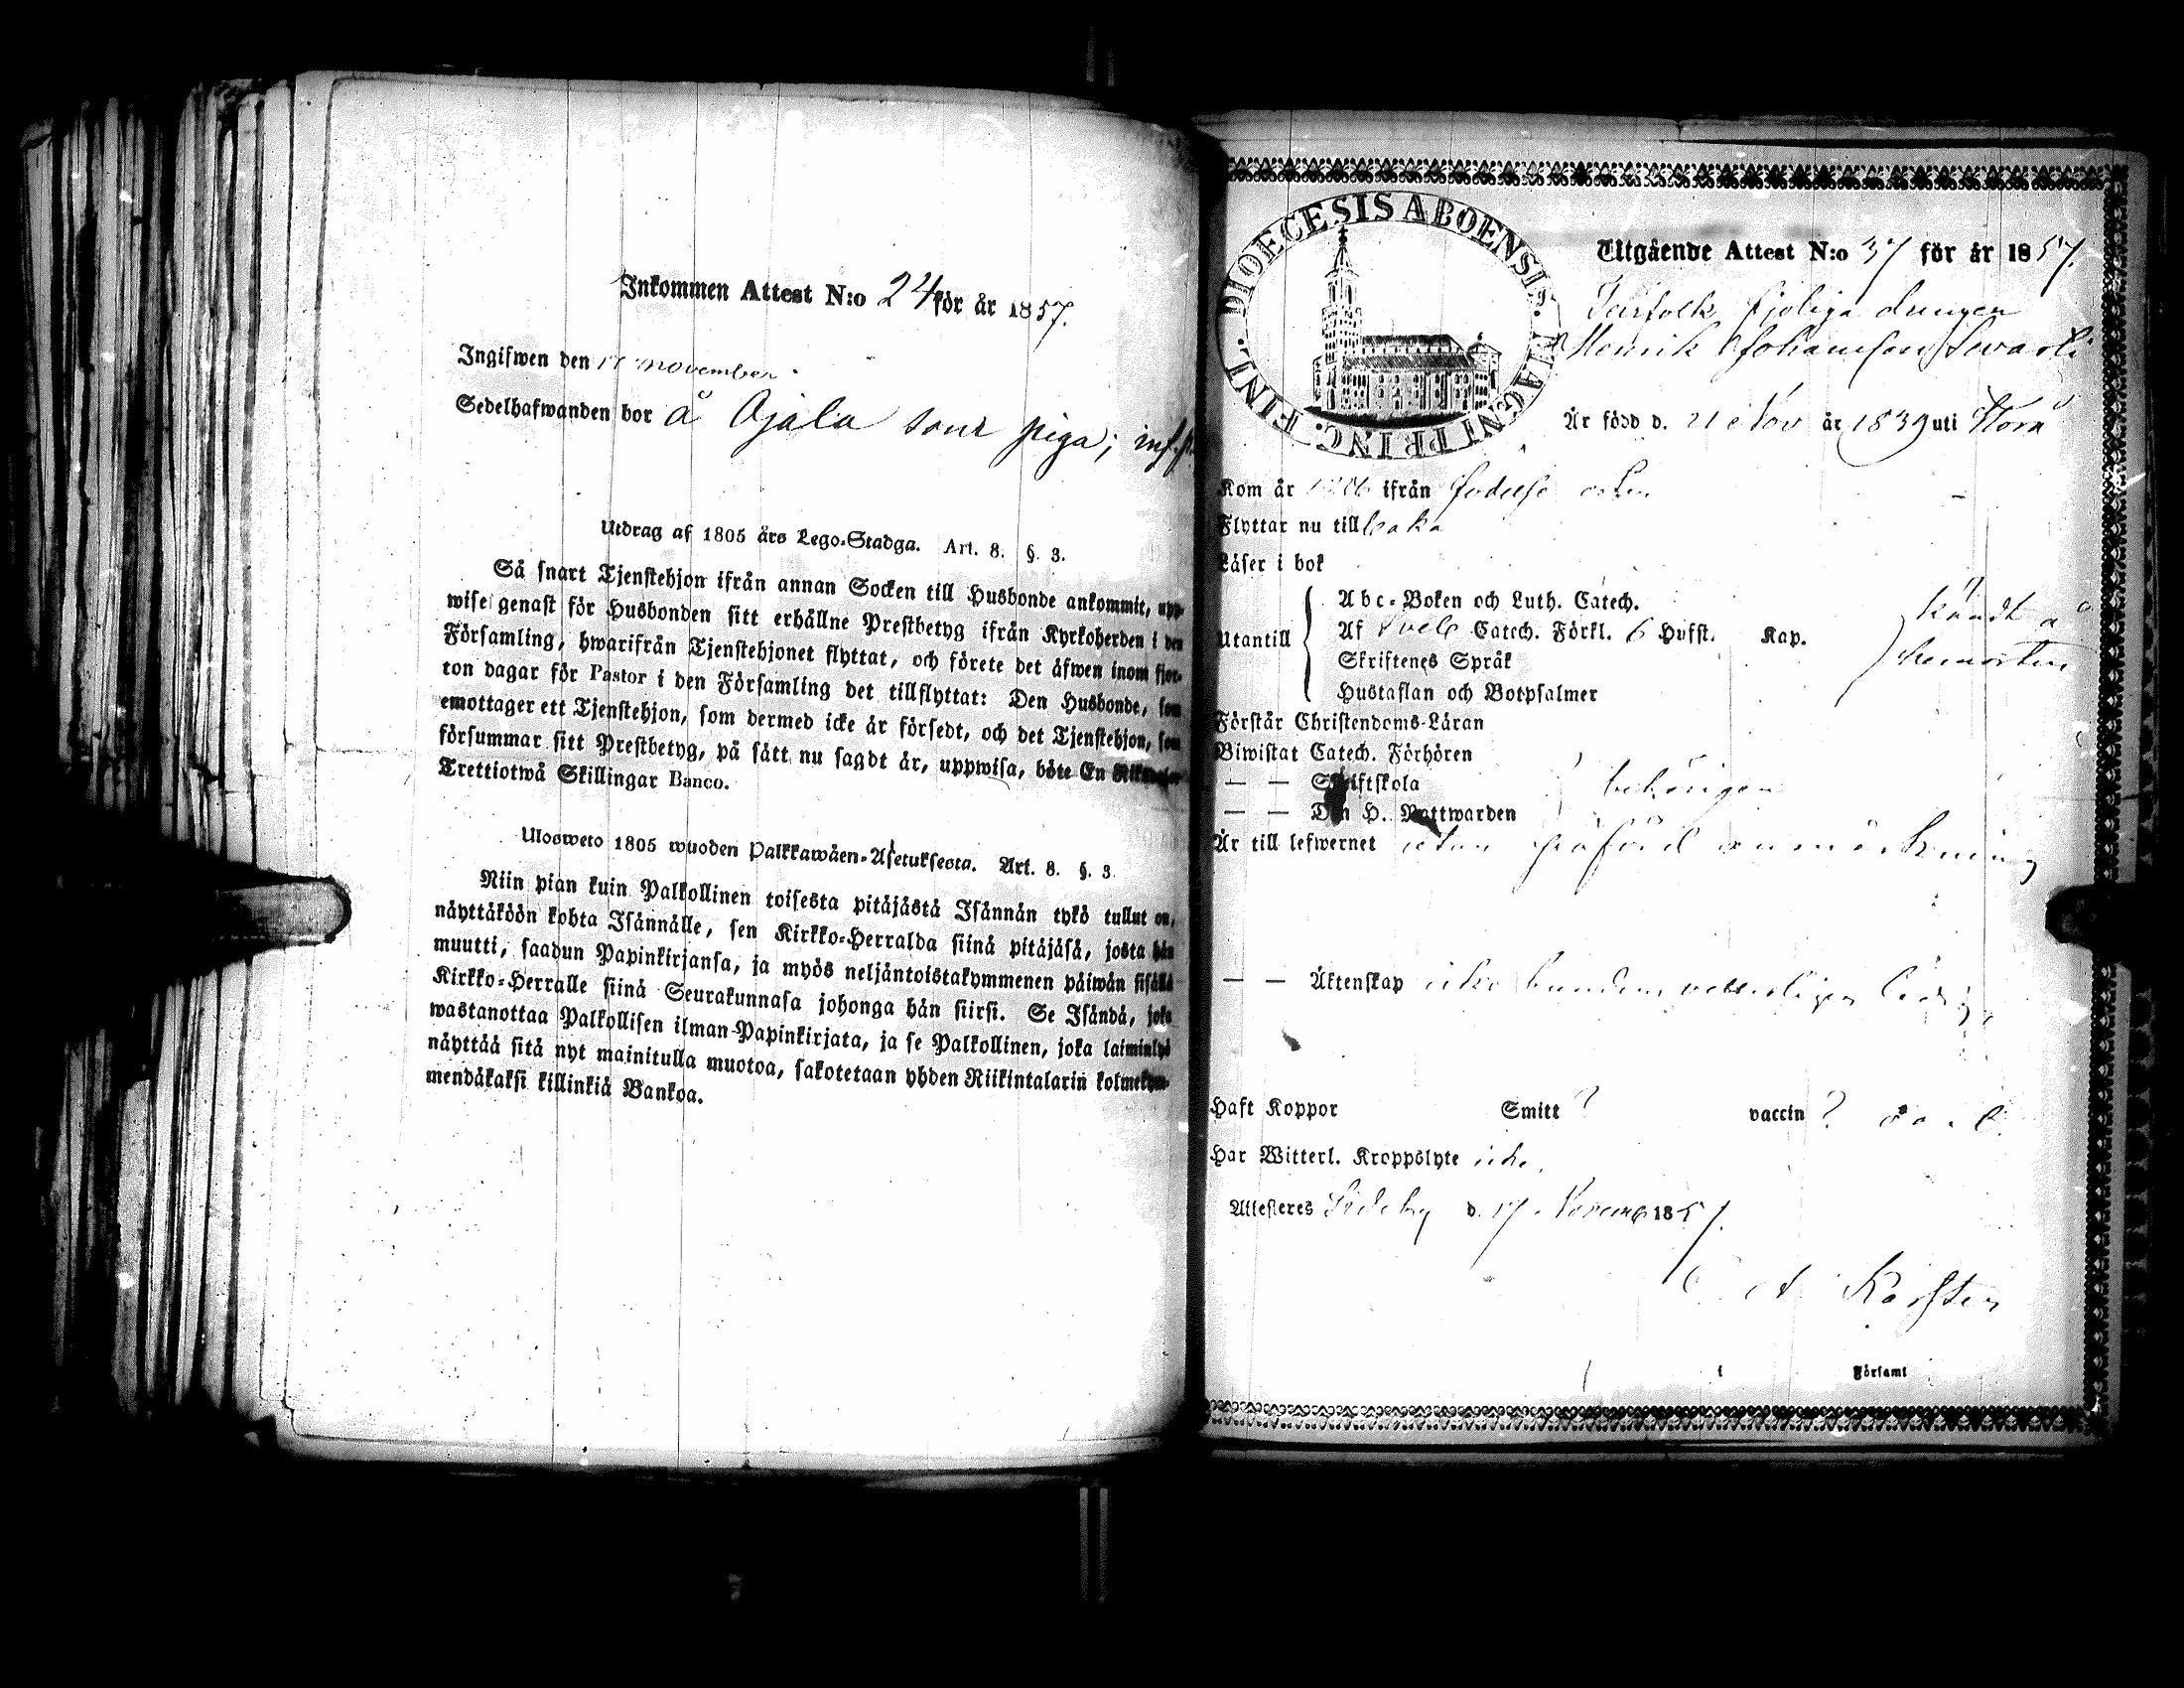 Inkommen Attest N:o 24 för år 1857.
Ingifwen den 17 november.
Sedelhafwanden bor å Ojala som piga;
Utdrag af 1805 års Lego-Stadga. Art. 8. §. 3.
Så snart Tjenstehjon ifrån annan Socken till Husbonde ankommit, upp-
wise genast för Husbonden sitt erhållne Prestbetyg ifrån Kyrkoherden i den
Församling, hwarifrån Tjenstehjonet flyttat, och förete det äfwen inom fjor-
ton dagar för Pastor i den Församling det tillflyttat: Den Husbonde, som
emottager ett Tjenstehjon, som dermed icke är försedt, och det Tjenstehjon, som
försummar sitt Prestbetyg, på sätt nu sagdt är, uppwisa, böte En Riksdaler
Trettiotwå Skillingar Banco.
Ulosweto 1805 wuoden Palkkawäen-Asetuksesta. Art. 8. §. 3.
Niin pian kuin Palkollinen toisesta pitäjästä Isännän tykö tullut on,
näyttäköön kohta Isännälle, sen Kirkko-Herralda siinä pitäjäsä, josta hän
muutti, saadun Papinkirjansa, ja myös neljäntoistakymmenen päiwän sisällä
Kirkko-Herralle siinä Seurakunnasa johonga hän siirsi. Se Isändä, joka
wastanottaa Palkollisen ilman Papinkirjata, ja se Palkollinen, joka laiminlyö
näyttää sitä nyt mainitulla muotoa, sakotetaan yhden Riikintalarin kolmekym-
mendäkaksi killinkiä Bankoa.
DIOECESIS ABOENSIS. MAGNI PRINC. FINL.
Utgående Attest N:o 37 för år 1857.
drengen
Henrik Johansson
Är född d. 21 Nov år 1839 uti Storå
Kom år ifrån födelse orten
Flyttar nu tillbaka
Läser i bok
Utantill
Abc-Boken och Luth. Catech.
Af Svebe Catech. Förkl. 6 Hufst. Kap.
Skriftenes Språk
Hustaflan och Botpsalmer
kändt å
hemorten
Förstår Christendoms-Läran
Biwistat Catech. Förhören
— — Skriftskola
behörigen
— — Den H. Nattwarden
Är till lefwernet utan införd anmärkning
— — Äktenskap icke bunden, vetterligen ledig,
Haft Koppor Smitt ? vaccin ?
Har Witterl. Kroppslyte icke.
Attesteres Sideby d. 17 Novemb 1857.
C A Karsten
i Församl